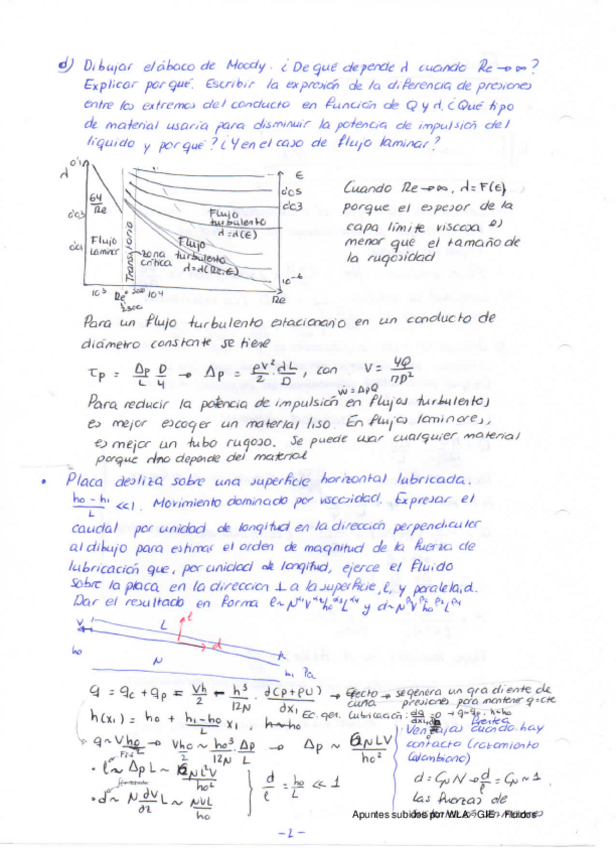 d) Dibujar el ábaco de Moody. ¿De qué depende λ cuando Re→∞?
Explicar por qué. Escribir la expresión de la diferencia de presiones
entre los extremos del conducto en función de Q y d. ¿Qué tipo
de material usaría para disminuir la potencia de impulsión del
líquido y por qué? ¿Y en el caso de flujo laminar?
λ
64/Re
Flujo laminar
Transitorio
zona crítica
Flujo turbulento λ=λ(Re,ε)
Flujo turbulento λ=λ(ε)
ε
10³
10⁴
Re
Cuando Re→∞, λ=F(ε)
porque el espesor de la
capa límite viscosa es
menor que el tamaño de
la rugosidad
Para un flujo turbulento estacionario en un conducto de
diámetro constante se tiene
τp = Δp/L D/4 → Δp = ρV²/2 λL/D, con V = 4Q/πD²
Ẇ = ΔpQ
Para reducir la potencia de impulsión en flujos turbulentos
es mejor escoger un material liso. En flujos laminares,
es mejor un tubo rugoso. Se puede usar cualquier material
porque no depende del material
• Placa desliza sobre una superficie horizontal lubricada.
h0-h1/L <<1. Movimiento dominado por viscosidad. Expresar el
caudal por unidad de longitud en la dirección perpendicular
al dibujo para estimar el orden de magnitud de la fuerza de
lubricación que, por unidad de longitud, ejerce el fluido
sobre la placa en la dirección ⊥ a la superficie, l, y paralela, d.
Dar el resultado en forma
V
L
l
d
h0
N
h1
Pa
q = qc + qp = Vh/2 - h³/12N d(p+ρU)/dx1 → Efecto cuña → se genera un gradiente de
presiones para mantener q=cte
h(x1) = h0 + h1-h0/L x1
Ec. gen. Lubricación:
q ~ Vh0 → Vh0 ~ h0³/12N Δp/L → Δp ~ 6NLV/h0²
• l ~ Δp L ~ 6NL²V/h0²
• d ~ N dV/dz L ~ NVL/h0
d/l = h0/L << 1
Ventajas cuando hay
contacto (rozamiento
coulombiano)
d = CμN → d/l = Cμ ~ 1
las fuerzas de
Apuntes subidos por WLA - GIE - Fluidos
-1-